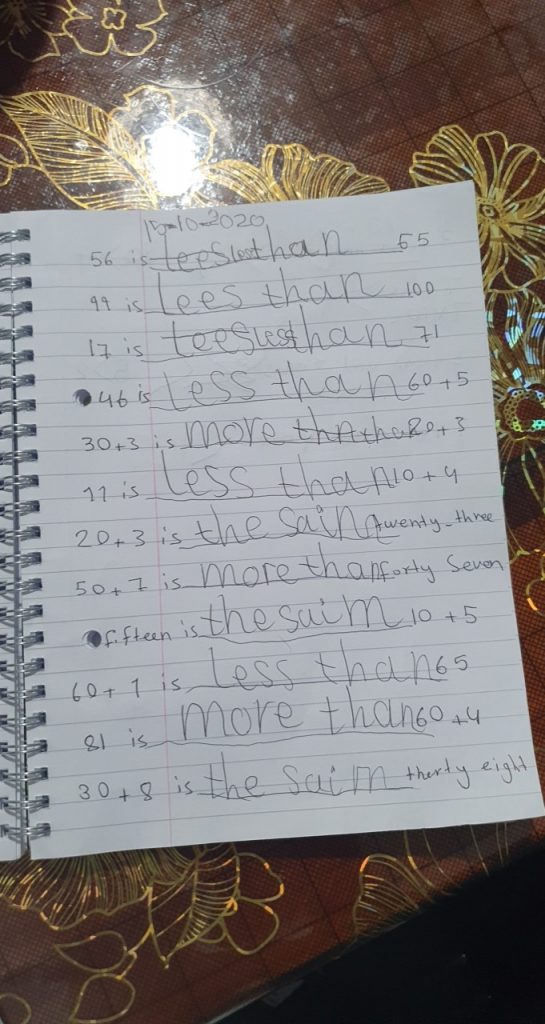 15-10-2020
56 is leesless than 65
99 is lees than 100
17 is leesless than 71
46 is less than 60+5
30+3 is more than 20+3
11 is less than 10+4
20+3 is the saim twenty-three
50+7 is more than forty Seven
fifteen is the saim 10+5
60+1 is less than 65
81 is more than 60+4
30+8 is the saim therty eight